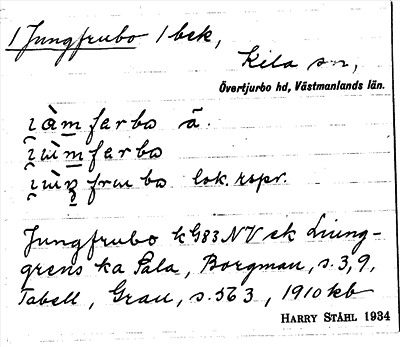 1 Jungfrubo 1 bsk,
Kila sn,
Övertjurbo hd, Västmanlands län.
farbo ā.
farbo
frubo lok. rspr.
Jungfrubo kG83NV ek Ljung-
grens ka Sala, Borgman, s. 3, 9,
Tabell, Grau, s. 563, 1910 kb
HARRY STÅHL 1934